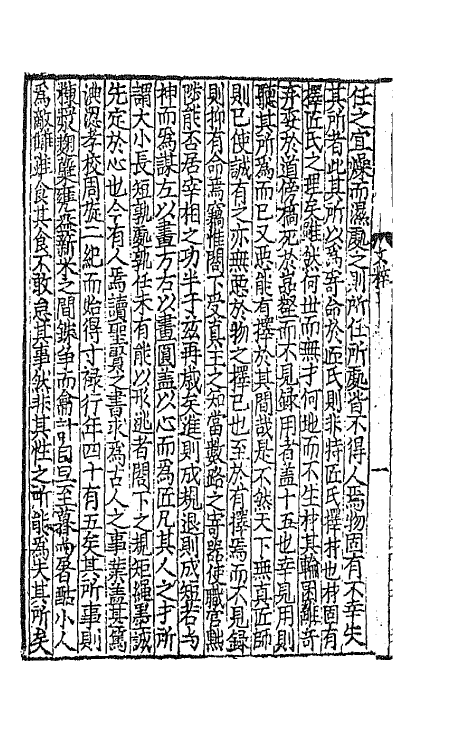 任之宜燥而濕處之則所任所處皆不得人焉物固有不幸失
其所者此其所以爲寄命於匠氏則非特匠氏擇材也材固有
擇匠氏之理矣雖然何世而無才何地而不生材其輪囷離奇
弃委於道傍槁死於嵓壑而不見録用者盖十五也幸見用則
聽其所爲而已又惡能有擇於其間哉是不然天下無真匠師
則已使誠有之亦無要於物之擇已也至於有擇焉而不見録
則抑有命焉竊惟閤下受真主之知當數路之寄器使職官熙
能否居宰相之功半于兹再歲矣進則成規退則成矩若与
神而爲謀左以畫方右以畫圓盖以心而爲匠凡其人之才所
謂大小長短孰處孰任未有能以形逃者閤下之規矩繩墨誠
先定於心也今有人焉讀聖賢之書求爲古人之事業盖其篤
㴞忍孝校周旋二紀而始得寸禄行年四十有五矣其所事則
虀鹽薪水之間銖争而龠計自旦至暮與屠酤小人
爲敵讎雖食其食不敢怠其事然非其性之所能爲夫其所矣
文粹
一